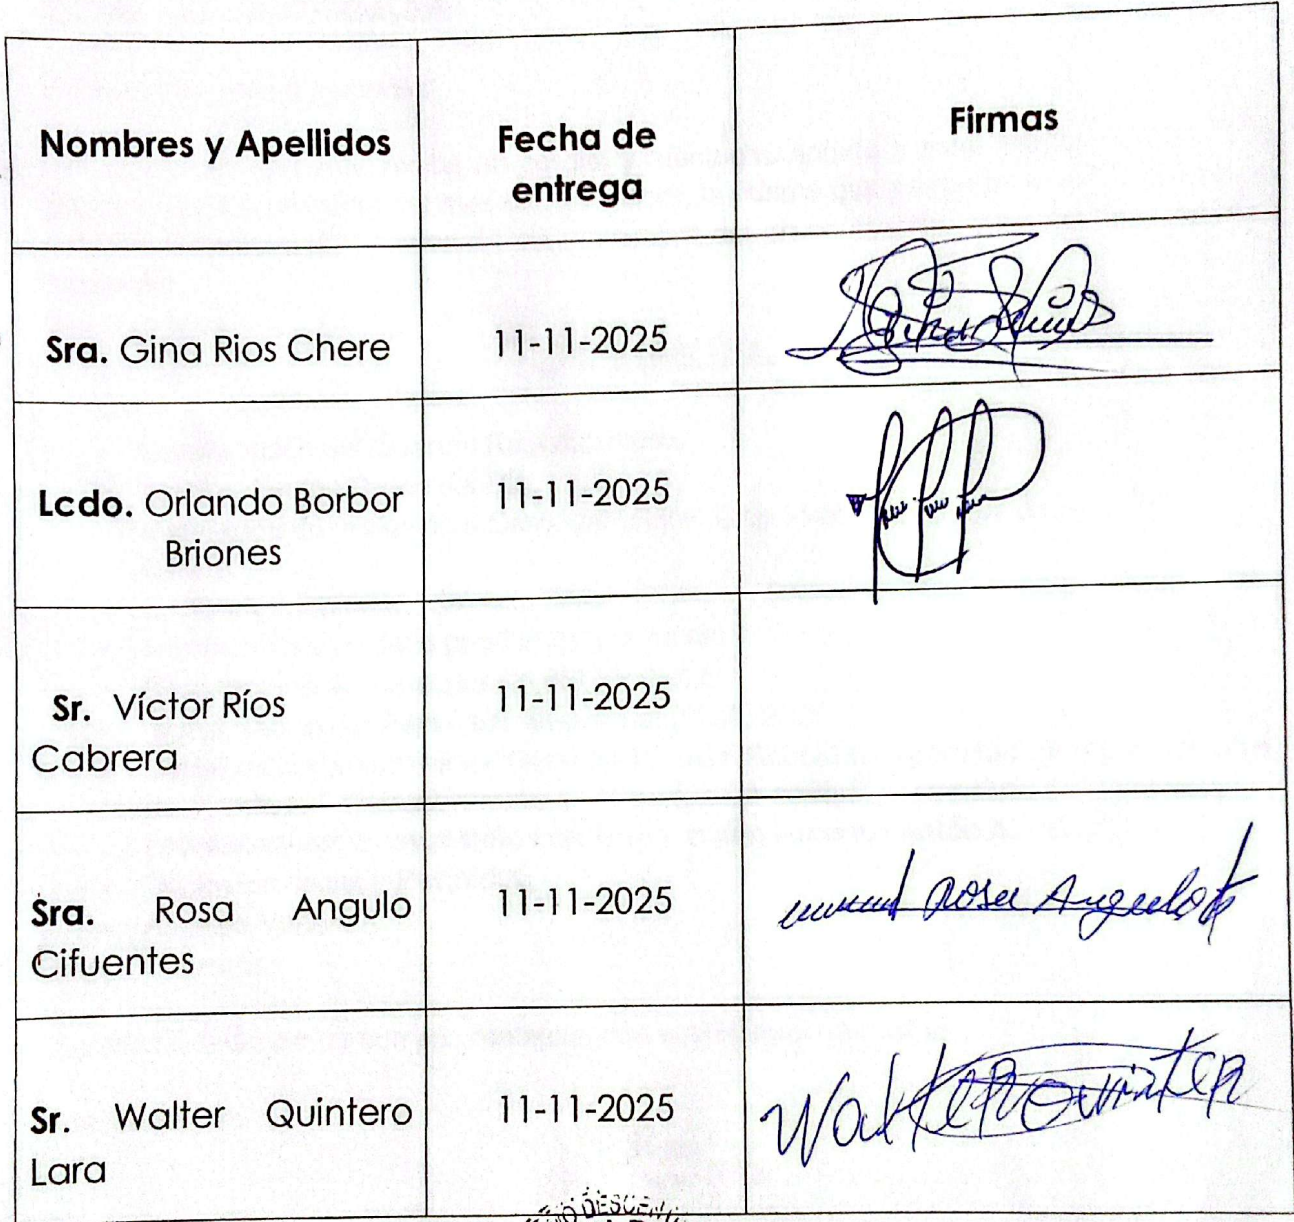 Nombres y Apellidos
Fecha de
entrega
Firmas
Sra. Gina Rios Chere
11-11-2025
Lcdo. Orlando Borbor
Briones
11-11-2025
Sr. Víctor Ríos
Cabrera
11-11-2025
Sra. Rosa Angulo
Cifuentes
11-11-2025
Rosa Angulo
Sr. Walter Quintero
Lara
11-11-2025
Walter Quinter